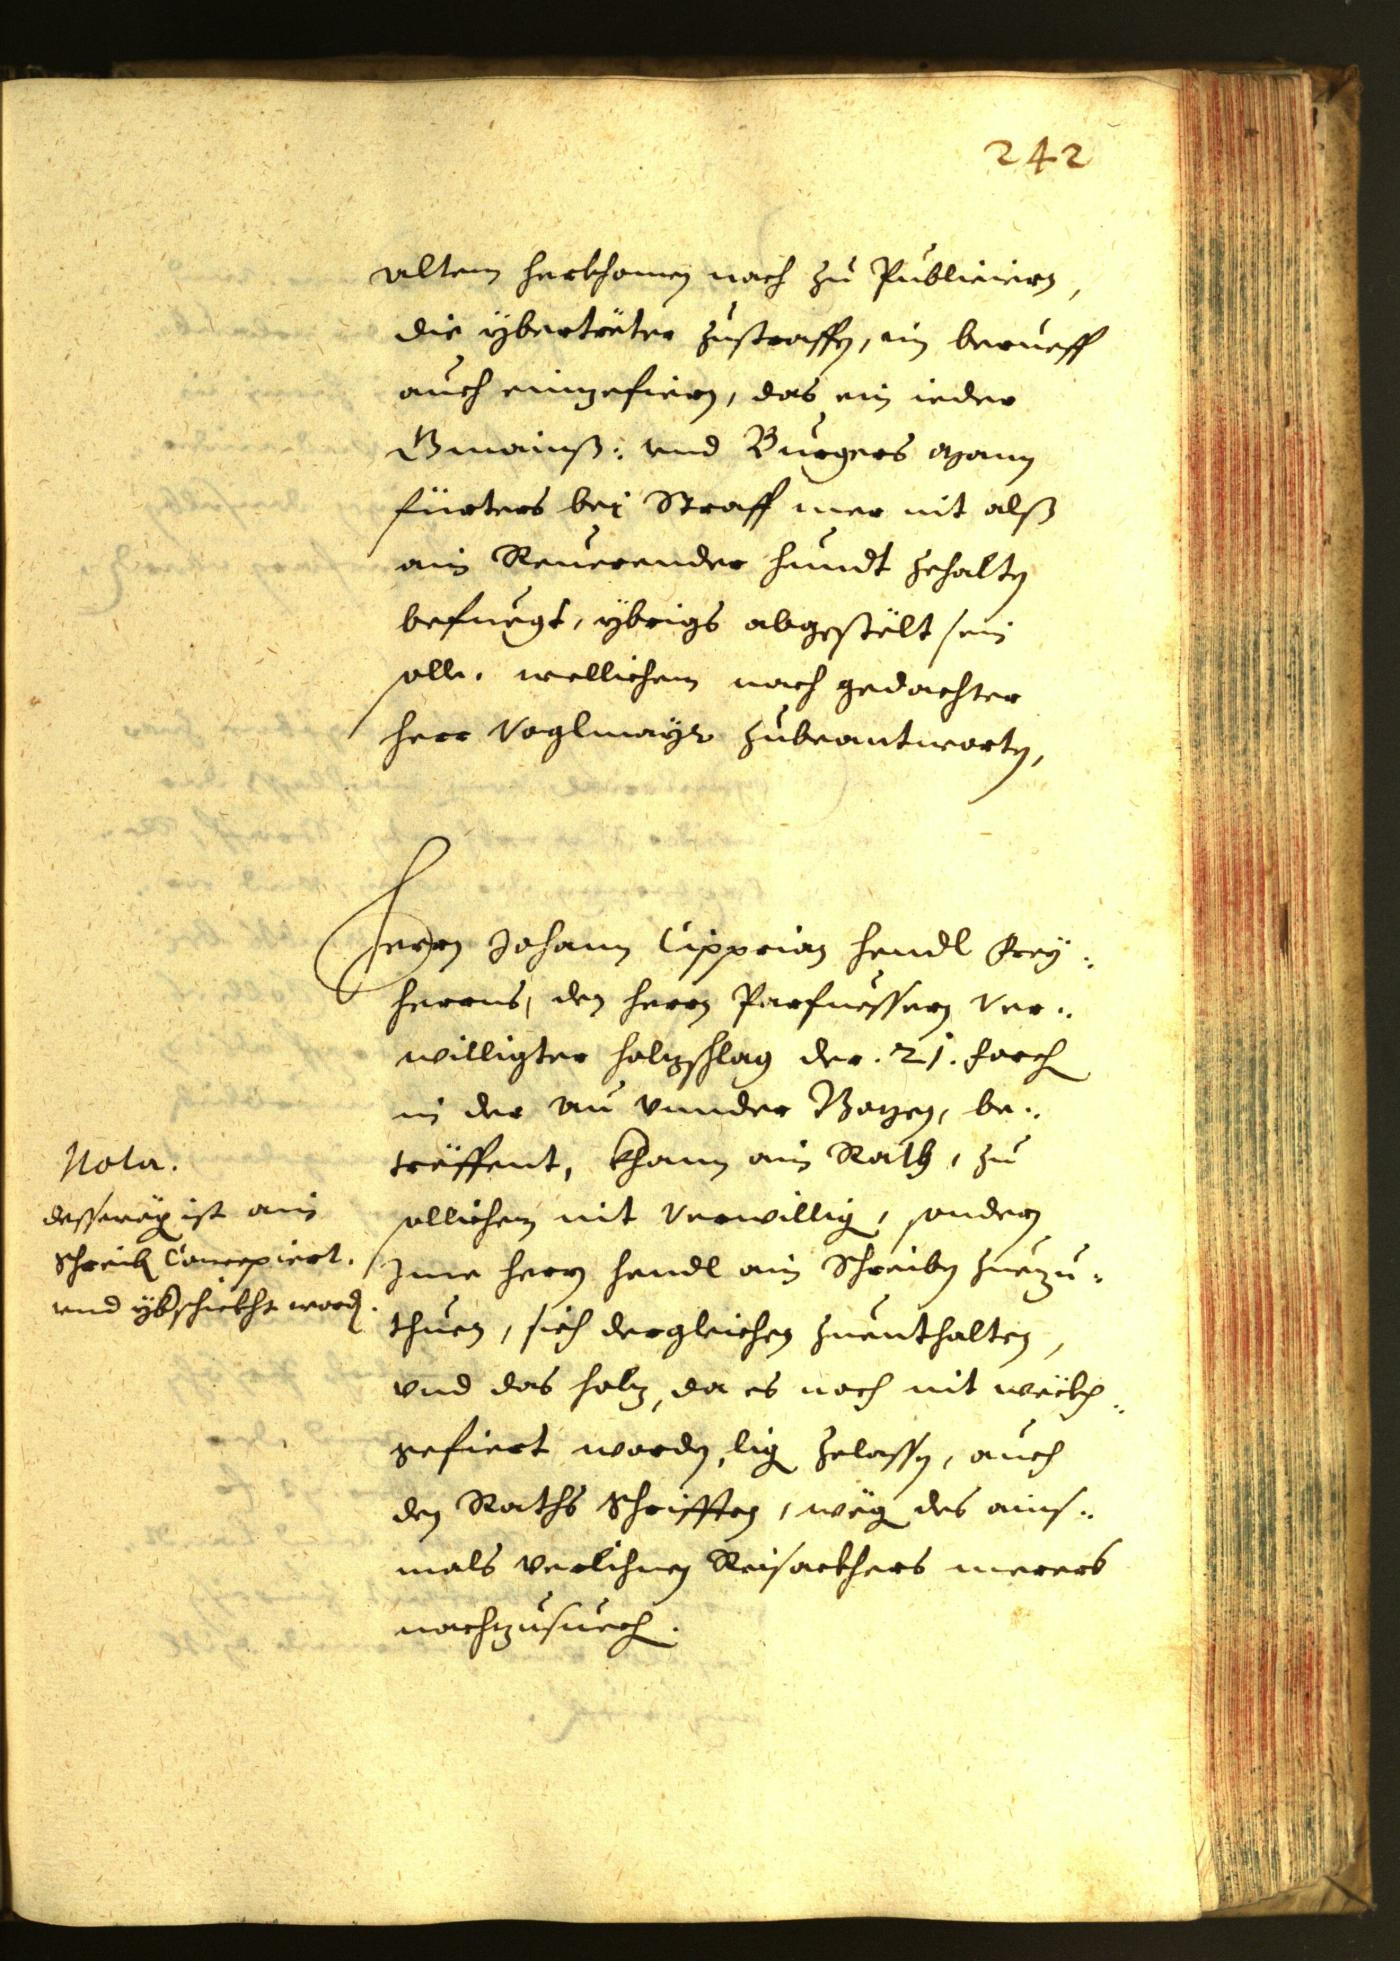 242
altem herkhomen nach zu Publiciern,
die ÿbertrëter zustraffen, im berueff
auch einzefiern, das ein ieder
Gmainß: vnd Burgers Mann
fürters bei Straff mer nit alß
ain Reuerender hundt zehalten
befuegt, ÿbrigs abgestëlt sein
solle. wellichem nach gedachter
herr Voglmayr zubeantworten,
Herrn Johann Cipprian hendl Frey:
herrns, den herrn Parfuessern Ver:
willigter holzschlag der .21. Forch
in der au vnnder Bozen, be:
trëffent, khann ain Rath, zu
sollichem nit Verwillig, sondern
Ime herrn hendl ain Schreiben zuezu:
thuen, sich dergleichen zuenthalten,
vnd das holz, da es noch nit wëckh:
gefiert worden, lig zelassen, auch
den Raths Schrifften, wëg des ains:
mals verlihnen Reisackhers merers
nachzusuech.
Nota.
dessweg ist ain
Schreib Concepiert.
vnd ÿberschickht word.